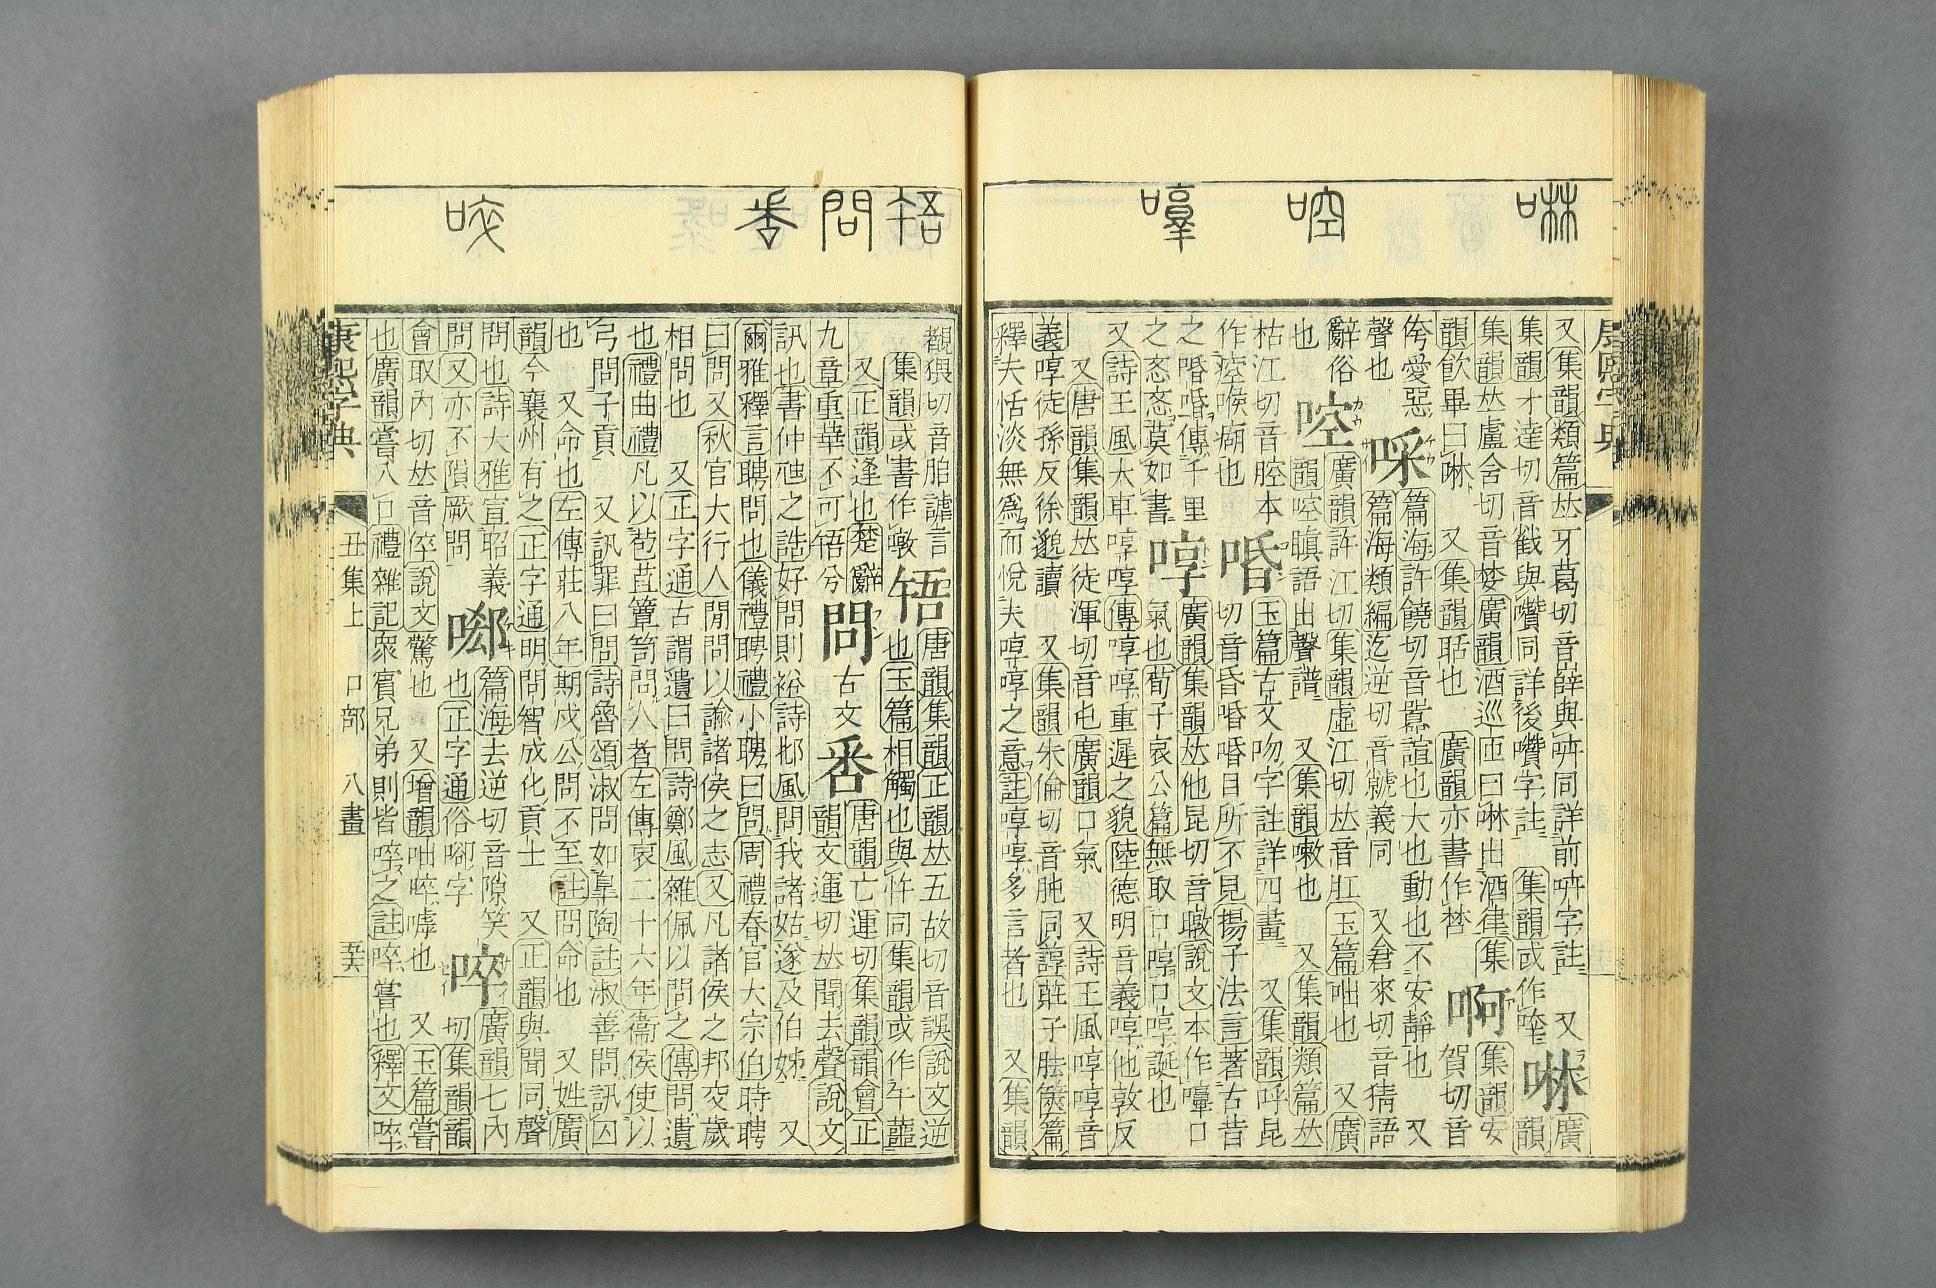 啉
啌
啍
又集韻類篇𠀤牙葛切音嶭與㖕同詳前㖕字註 又
集韻才達切音巀與囋同詳後囋字註 集韻或作𠵹 啉 廣韻
集韻𠀤盧含切音婪廣韻酒巡匝曰啉出酒律集
韻飮畢曰啉 又集韻聒也 廣韻亦書作㗲 啊 集韻安賀切音
侉愛惡聲也 啋 篇海許饒切音囂諠也大也動也不安靜也 又
篇海類編迄逆切音虩義同 又倉來切音猜語
辭俗 啌 廣韻許江切集韻虛江切𠀤音肛玉篇咄也 又廣
韻啌瞋語出聲譜 又集韻嗽也 又集韻類篇𠀤
枯江切音腔本作㾤喉痬也 㖧 玉篇古文吻字註詳四畫 又集韻呼昆
切音昏㖧㖧目所不見揚子法言著古昔
之㖧㖧傳千里之忞忞莫如書 啍 廣韻集韻𠀤他昆切音暾說文本作㖟口
氣也荀子哀公篇無取口啍口啍誕也
又詩王風大車啍啍傳啍啍重遲之貌陸德明音義啍他敦反
又唐韻集韻𠀤徒渾切音屯廣韻口氣 又詩王風啍啍音
義啍徒孫反徐邈讀 又集韻朱倫切音肫同諄莊子胠篋篇
釋夫恬淡無爲而悅夫啍啍之意註啍啍多言者也 又集韻
啎
問
唪
觀𤟤切音胎譃言
集韻或書作暾 啎 唐韻集韻正韻𠀤五故切音誤說文逆
也玉篇相觸也與忤同集韻或作午蘁
又正韻逢也楚辭
九章重華不可啎兮 問 古文𠳅 唐韻亡運切集韻韻會正
韻文運切𠀤聞去聲說文
訊也書仲虺之誥好問則裕詩邶風問我諸姑遂及伯姊 又
爾雅釋言聘問也儀禮聘禮小聘曰問周禮春官大宗伯時聘
曰問又秋官大行人閒問以諭諸侯之志又凡諸侯之邦交歲
相問也 又正字通古謂遺曰問詩鄭風雜佩以問之傳問遺
也禮曲禮凡以苞苴簞笥問人者左傳哀二十六年衞侯使以
弓問子貢 又訊罪曰問詩魯頌淑問如臯陶註淑善問訊囚
也 又命也左傳莊八年期戍公問不至註問命也 又姓廣
韻今襄州有之正字通明問智成化貢士 又正韻與聞同聲
問也詩大雅宣昭義
問又亦不隕厥問 㗀 篇海去逆切音隙笑
也正字通俗㗀字 啐 廣韻七內
切集韻韻
會取內切𠀤音倅說文驚也 又增韻咄啐嘑也 又玉篇嘗
也廣韻嘗入口禮雜記衆賓兄弟則皆啐之註啐嘗也釋文啐
康熙字典
丑集上 口部 八畫